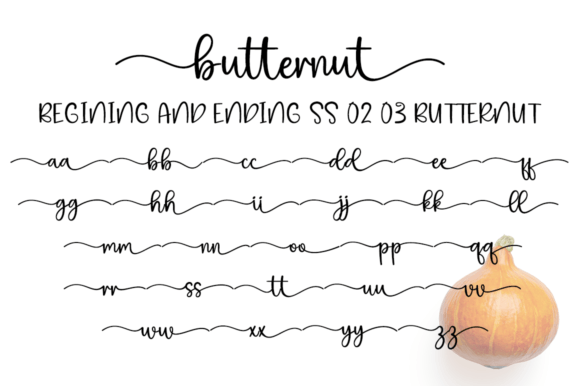 butternut
BEGINING AND ENDING SS 02 03 BUTTERNUT
aa bb cc dd ee ff
gg hh ii jj kk ll
mm nn oo pp qq
rr ss tt uu vv
ww xx yy zz